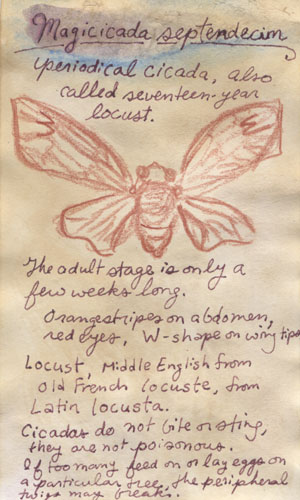 Magicicada septendecim
periodical cicada, also
called seventeen-year
locust.
The adult stage is only a
few weeks long.
Orange stripes on abdomen,
red eyes, W-shape on wing tips
Locust, Middle English from
Old French locuste, from
Latin locusta.
Cicadas do not bite or sting,
they are not poisonous.
If too many feed on or lay eggs on
a particular tree, the peripheral
twigs may break.